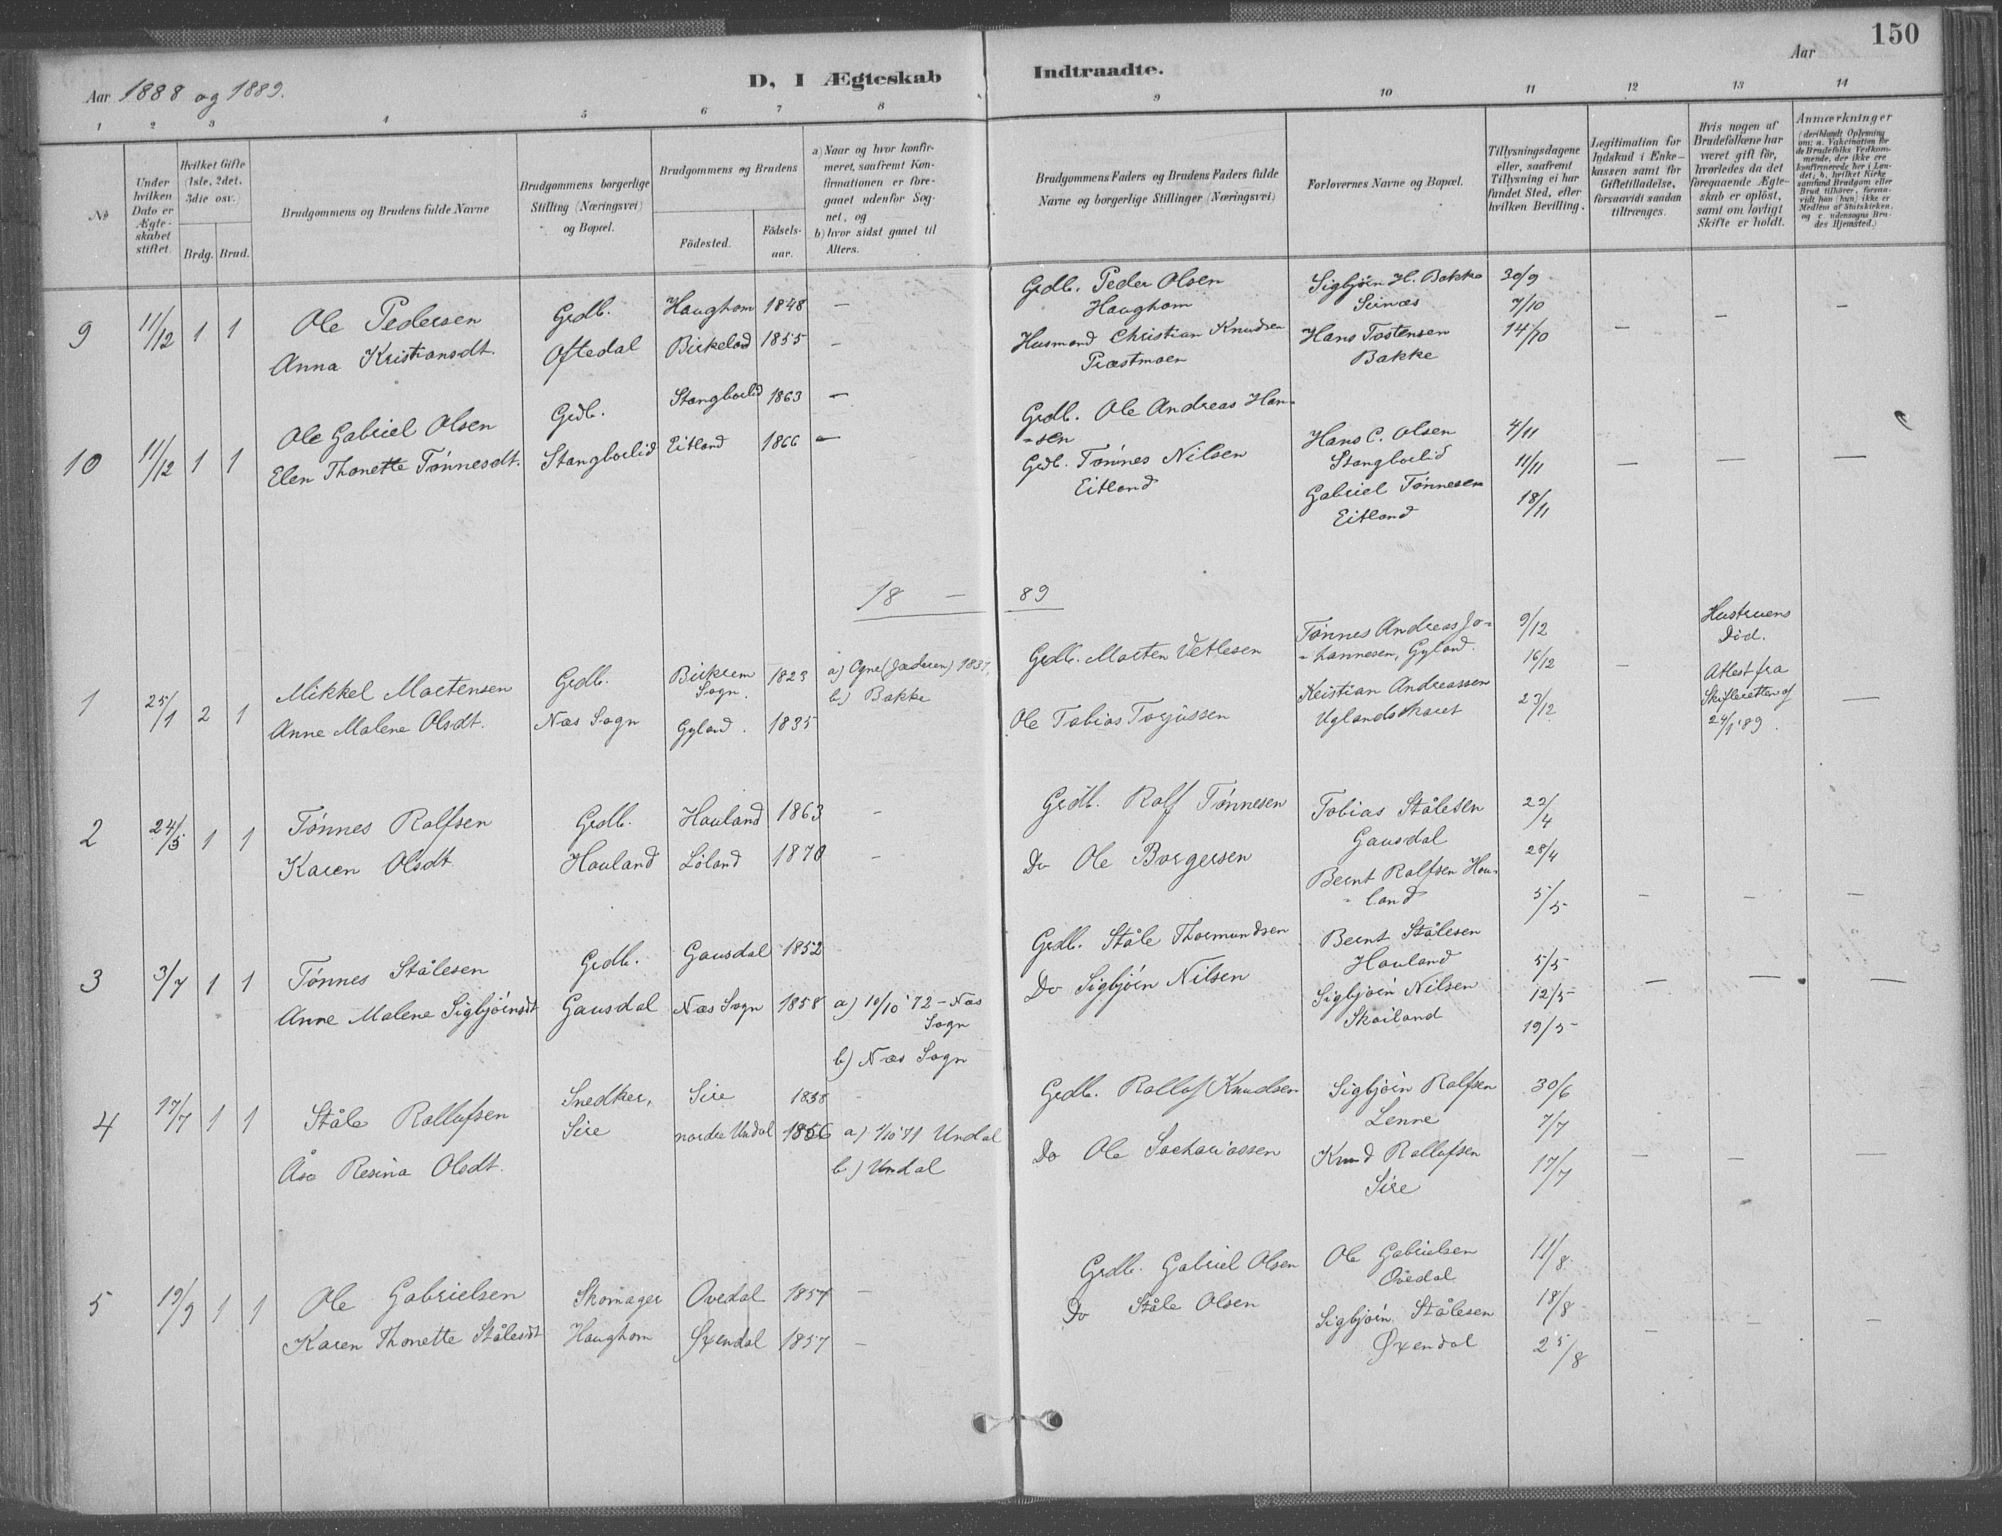 150
Aar 1888 og 1889.
D, I Ægteskab Indtraadte.
Aar
1 2 3 4 5 6 7 8 9 10 11 12 13 14
No
Under hvilken Dato er Ægteskabet stiftet.
Hvilket Gifte (1ste, 2det, 3die osv.)
Brdg. Brud.
Brudgommens og Brudens fulde Navne
Brudgommens borgerlige Stilling (Næringsvei) og Bopæl.
Brudgommens og Brudens
Födested.
Födsels-aar.
a) Naar og hvor konfirmeret, saafremt Konfirmationen er foregaaet udenfor Sognet, og
b) hvor sidst gaaet til Alters.
Brudgommens Faders og Brudens Faders fulde Navne og borgerlige Stillinger (Næringsvei)
Forlovernes Navne og Bopæl.
Tillysningsdagene eller, saafremt Tillysning ei har fundet Sted, efter hvilken Bevilling.
Legitimation for Indskud i Enkekassen samt for Giftetilladelse, forsaavidt saadan tiltrenges.
Hvis nogen af Brudefolkene har været gift för, hvorledes da det foregaaende Ægteskab er oplöst, samt om lovligt Skifte er holdt.
Anmærkninger
9 11/12 1 1
Ole Pedersen
Anna Kristiansdt.
Grdb.
Oftedal
Haughom 1848 —
Birkeland 1855 —
Grdb. Peder Olsen
Haughom
Husmand Christian Knudsen
Præstmoen
Sigbjörn H. Bakke
Sirnæs
Hans Tostensen
Bakke
30/9
7/10
14/10
— — —
10 11/12 1 1
Ole Gabriel Olsen
Elen Thonette Tønnesdt.
Grdb.
Stangborlid
Stangborlid 1863 —
Eitland 1866 —
Grdb. Ole Andreas Han-
-sen
Grdb. Tønnes Nilsen
Eitland
Hans C. Olsen
Stangborlid
Gabriel Tønnesen
Eitland
4/11
11/11
18/11
— — —
18 — 89
1 25/1 2 1
Mikkel Martensen
Anne Malene Olsdt.
Grdb.
Næs Sogn
Birkrem Sogn. 1823
Gyland. 1835
a) Ogne (Jæderen) 1837,
b) Bakke
Grdb. Morten Vetlesen
Ole Tobias Torjussen
Tønnes Andreas Jo-
-hannesen, Gyland.
Kristian Andreassen
Uglandsskaret
9/12
16/12
23/12
—
Hustruens
Död.
Attest fra
Skifteretten af
24/1 '89.
—
2 24/5 1 1
Tønnes Rolfsen
Karen Olsdt
Grdb.
Houland
Houland 1863 —
Löland 1870 —
Grdb. Rolf Tønnesen
Do Ole Borgersen
Tobias Stålesen
Gausdal
Bernt Rolfsen Hou-
-land
22/4
28/4
5/5
— — —
3 3/7 1 1
Tønnes Stålesen
Anne Malene Sigbjörnsdt
Grdb.
Gausdal
Gausdal 1852 —
Næs Sogn 1858
a) 10/10 '72 - Næs Sogn
b) Næs Sogn
Grdb. Ståle Thormundsen
Do Sigbjörn Nilsen
Bernt Stålesen
Houland
Sigbjörn Nilsen
Skoiland
5/5
12/5
19/5
— — —
4 17/7 1 1
Ståle Rollufsen
Åse Resina Olsdt.
Snedker,
Sire
Sire 1858 —
nordre Undal 1856
a) 1/10 '71 Undal
b) Undal
Grdb. Rolluf Knudsen
Do Ole Sachariassen
Sigbjörn Rolfsen
Lenne
Knud Rollufsen
Sire
30/6
7/7
17/7
— — —
5 19/9 1 1
Ole Gabrielsen
Karen Thonette Stålesdt
Skomager
Haughom
Ovedal 1857 —
Øxendal 1857 —
Grdb. Gabriel Olsen
Do Ståle Olsen
Ole Gabrielsen
Ovedal
Sigbjörn Stålesen
Øxendal
11/8
18/8
25/8
— — —